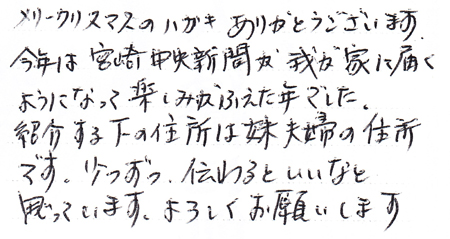 メリークリスマスのハガキ ありがとうございます.
今年は 宮崎中央新聞が 我が家に届く
ようになって 楽しみがふえた年でした。
紹介する下の住所は妹夫婦の住所
です。少つずつ、伝わるといいなと
思っています。よろしくお願いします